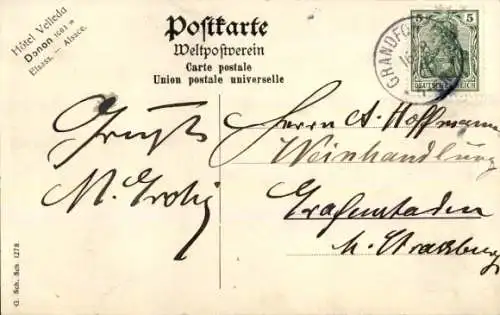 Hôtel Velleda
Donon
Elsass. — Alsace.
Postkarte
Weltpostverein
Carte postale
Union postale universelle
GRANDFO
5 5
DEUTSCHES REICH
Herrn A. Hoffmann
Weinhandlung
Grafenstaden
b. Strassburg
G. Sch. Sch. 1278.